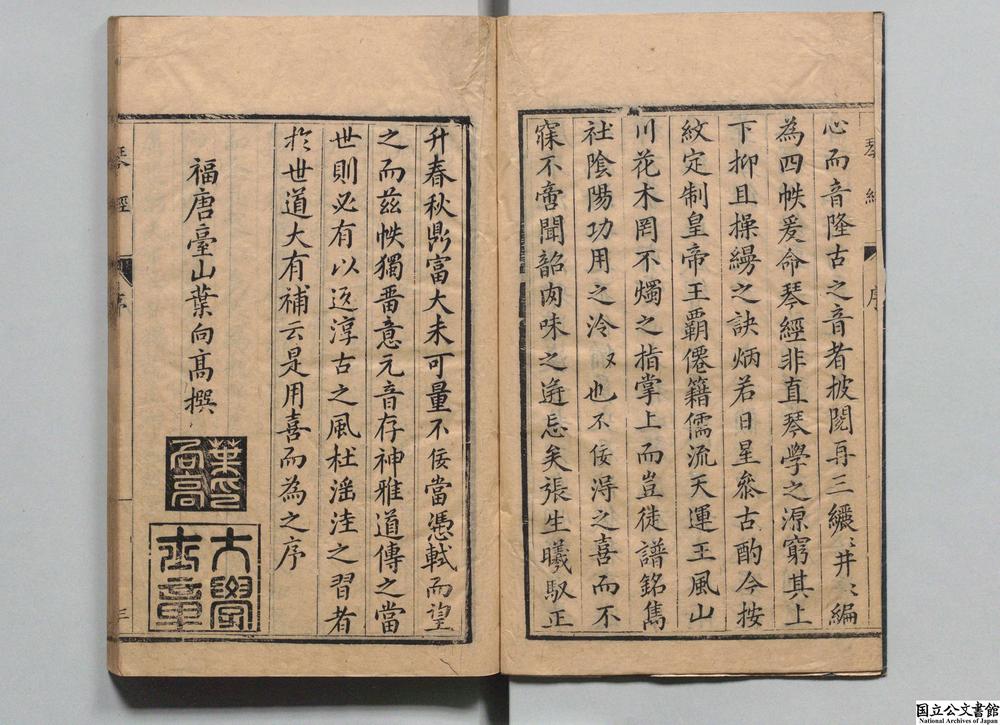 琴經
序
心而音隆古之音者披閱再三纚〻井〻編
為四帙爰命琴經非直琴學之源窮其上
下抑且操縵之訣炳若日星叅古酌今按
紋定制皇帝王覇僊籍儒流天運王風山
川花木罔不燭之指掌上而豈徒譜銘雋
社陰陽功用之泠〻也不佞淂之喜而不
寐不啻聞韶肉味之遄忘矣張生曦馭正
升春秋鼎富大未可量不佞當憑軾而望
之而茲帙獨畱意元音存神雅道傳之當
世則必有以返淳古之風杜滛洼之習者
於世道大有補云是用喜而為之序
福唐臺山葉向高撰
葉向高
大學士章
琴經
序
三
国立公文書館
National Archives of Japan